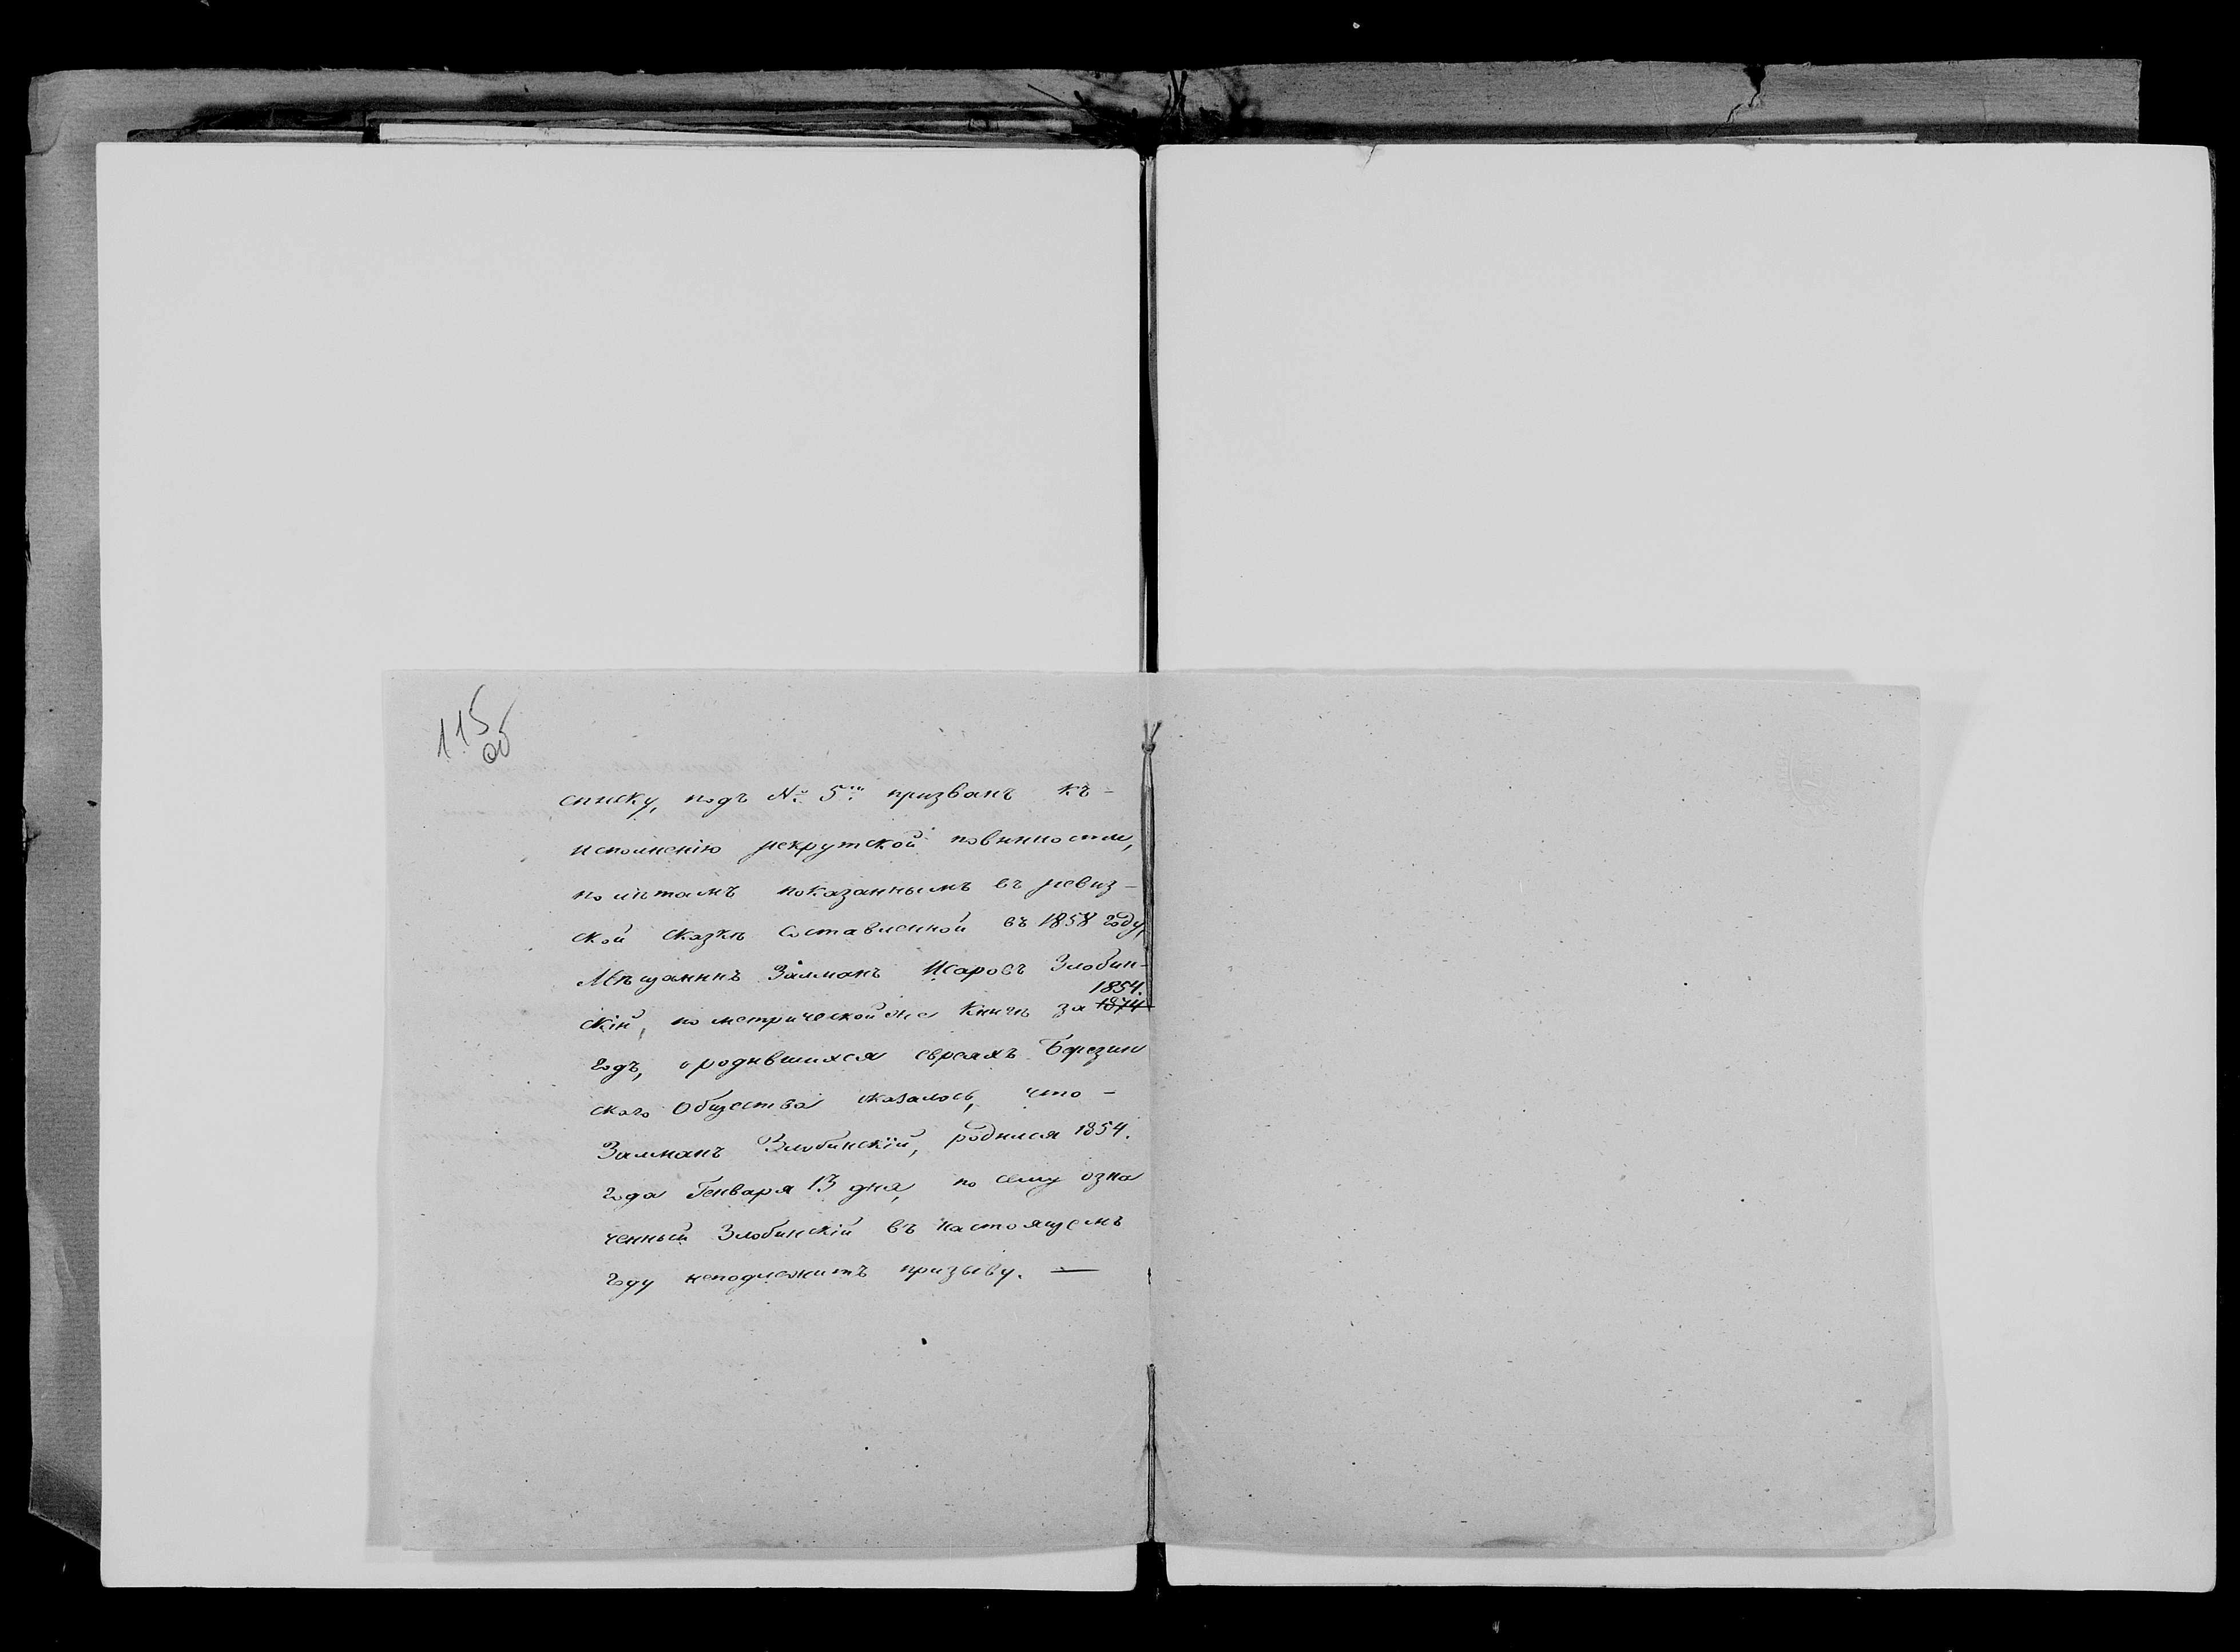 115
об
списку, подъ №: 5мъ призванъ къ-
исполненію рекрутской повинности,
по лѣтамъ показаннымъ въ ревиз-
ской сказкѣ составленной въ 1858 году,
Мѣщанинъ Залманъ Исаровъ Злобин-
1854.
скій, по метрической же Книгѣ за 1874
годъ, о родившихся евреяхъ Березин
скаго Общества оказалось, что -
Залманъ Злобинскій, родился 1854.
года Генваря 13 дня, по сему озна
ченный Злобинскій въ настоящемъ
году неподлежитъ призыву. —